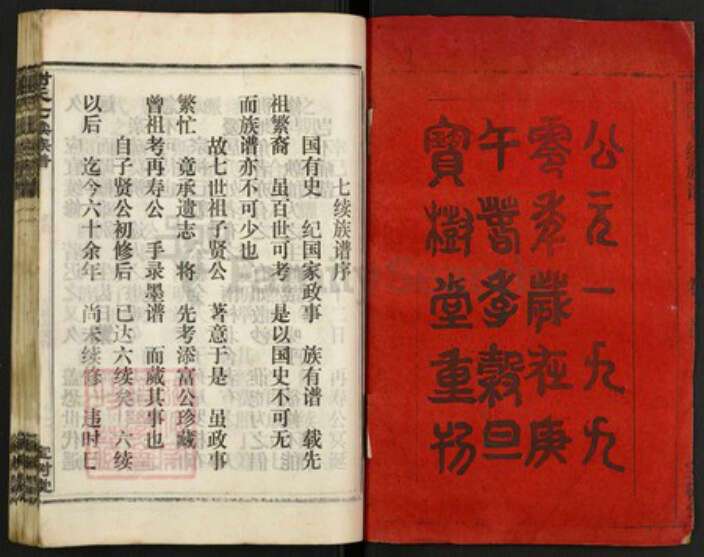 公元一九九
零年歲在庚
午蒼季穀旦
寶樹堂重刊
七续族谱序
国有史 纪国家政事 族有谱 载先
祖繁裔 虽百世可考 是以国史不可无
而族谱亦不可少也
故七世祖子贤公 著意于是 虽政事
繁忙 竟承遗志 将 先考添富公珍藏
曾祖考再寿公 手录墨谱 而藏其事也
自子贤公初修后 已达六续矣 六续
以后 迄今六十余年 尚未续修 违时已